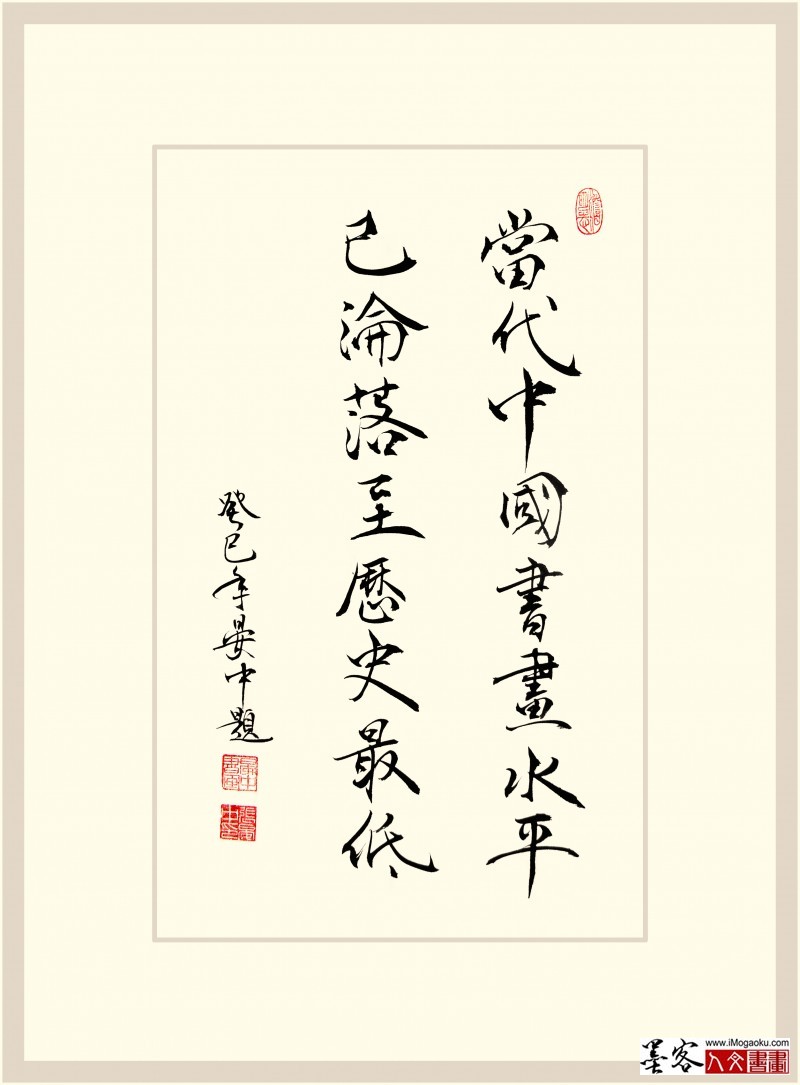 當代中國書畫水平
已淪落至歷史最低
癸巳年晏中題
墨客
www.iMogaoku.com
人文書畫